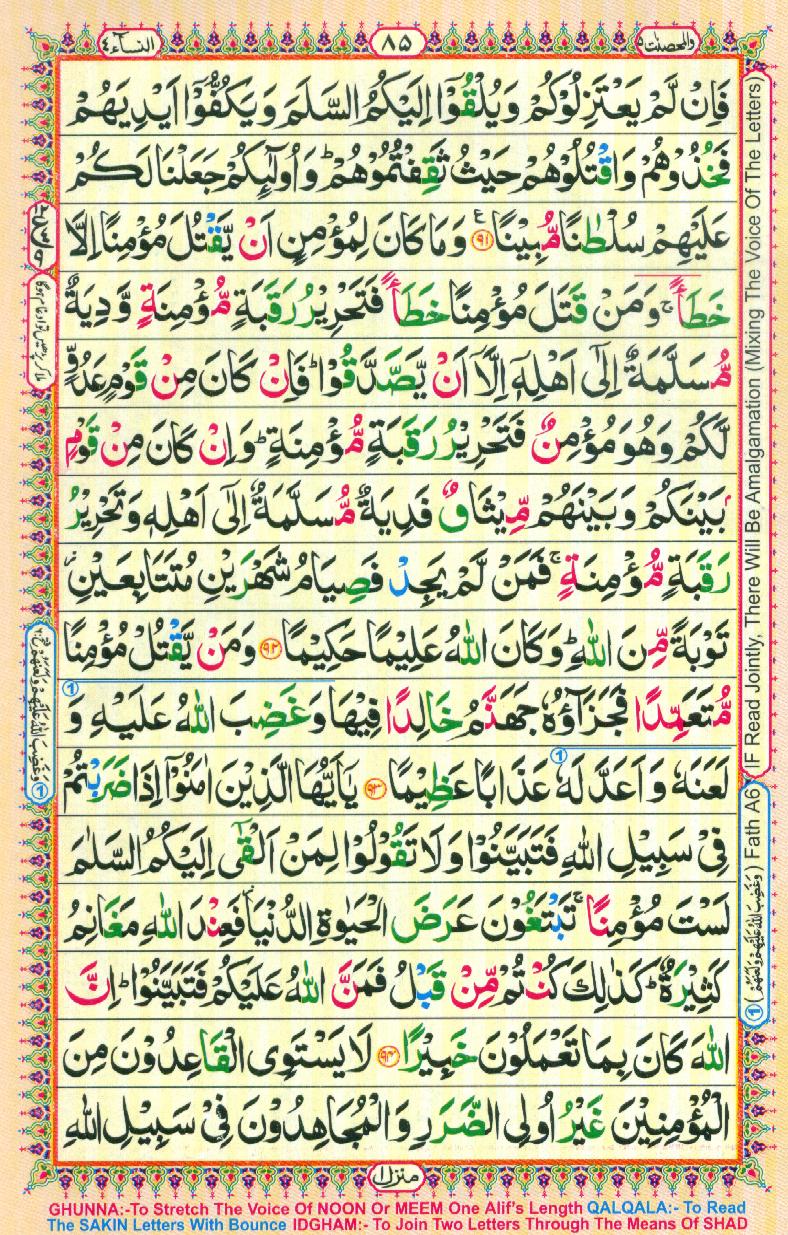 والمحصنت ۵
۸۵
النسآء ۴
فَاِنْ لَّمْ يَعْتَزِلُوْكُمْ وَيُلْقُوْٓا اِلَيْكُمُ السَّلَمَ وَيَكُفُّوْٓا اَيْدِيَهُمْ
فَخُذُوْهُمْ وَاقْتُلُوْهُمْ حَيْثُ ثَقِفْتُمُوْهُمْ ؕ وَاُولٰٓئِكُمْ جَعَلْنَا لَكُمْ
عَلَيْهِمْ سُلْطٰنًا مُّبِيْنًا ﴿۹۱﴾ وَمَا كَانَ لِمُؤْمِنٍ اَنْ يَّقْتُلَ مُؤْمِنًا اِلَّا
خَطَـًٔا ۚ وَمَنْ قَتَلَ مُؤْمِنًا خَطَـًٔا فَتَحْرِيْرُ رَقَبَةٍ مُّؤْمِنَةٍ وَّدِيَةٌ
مُّسَلَّمَةٌ اِلٰٓى اَهْلِهٖٓ اِلَّآ اَنْ يَّصَّدَّقُوْا ؕ فَاِنْ كَانَ مِنْ قَوْمٍ عَدُوٍّ
لَّكُمْ وَهُوَ مُؤْمِنٌ فَتَحْرِيْرُ رَقَبَةٍ مُّؤْمِنَةٍ ؕ وَاِنْ كَانَ مِنْ قَوْمٍۭ
بَيْنَكُمْ وَبَيْنَهُمْ مِّيْثَاقٌ فَدِيَةٌ مُّسَلَّمَةٌ اِلٰٓى اَهْلِهٖ وَتَحْرِيْرُ
رَقَبَةٍ مُّؤْمِنَةٍ ۚ فَمَنْ لَّمْ يَجِدْ فَصِيَامُ شَهْرَيْنِ مُتَتَابِعَيْنِ
تَوْبَةً مِّنَ اللّٰهِ ؕ وَكَانَ اللّٰهُ عَلِيْمًا حَكِيْمًا ﴿۹۲﴾ وَمَنْ يَّقْتُلْ مُؤْمِنًا
مُّتَعَمِّدًا فَجَزَآؤُهٗ جَهَنَّمُ خَالِدًا فِيْهَا وَغَضِبَ اللّٰهُ عَلَيْهِ وَ
لَعَنَهٗ وَاَعَدَّ لَهٗ عَذَابًا عَظِيْمًا ﴿۹۳﴾ يٰٓاَيُّهَا الَّذِيْنَ اٰمَنُوْٓا اِذَا ضَرَبْتُمْ
فِيْ سَبِيْلِ اللّٰهِ فَتَبَيَّنُوْا وَلَا تَقُوْلُوْا لِمَنْ اَلْقٰٓى اِلَيْكُمُ السَّلٰمَ
لَسْتَ مُؤْمِنًا ۚ تَبْتَغُوْنَ عَرَضَ الْحَيٰوةِ الدُّنْيَا ؗ فَعِنْدَ اللّٰهِ مَغَانِمُ
كَثِيْرَةٌ ؕ كَذٰلِكَ كُنْتُمْ مِّنْ قَبْلُ فَمَنَّ اللّٰهُ عَلَيْكُمْ فَتَبَيَّنُوْا ؕ اِنَّ
اللّٰهَ كَانَ بِمَا تَعْمَلُوْنَ خَبِيْرًا ﴿۹۴﴾ لَا يَسْتَوِى الْقَاعِدُوْنَ مِنَ
الْمُؤْمِنِيْنَ غَيْرُ اُولِى الضَّرَرِ وَالْمُجَاهِدُوْنَ فِيْ سَبِيْلِ اللّٰهِ
منزل ۱
IF Read Jointly, There Will Be Amalgamation (Mixing The Voice Of The Letters)
Fath A6
GHUNNA:-To Stretch The Voice Of NOON Or MEEM One Alif's Length QALQALA:- To Read
The SAKIN Letters With Bounce IDGHAM:- To Join Two Letters Through The Means Of SHAD